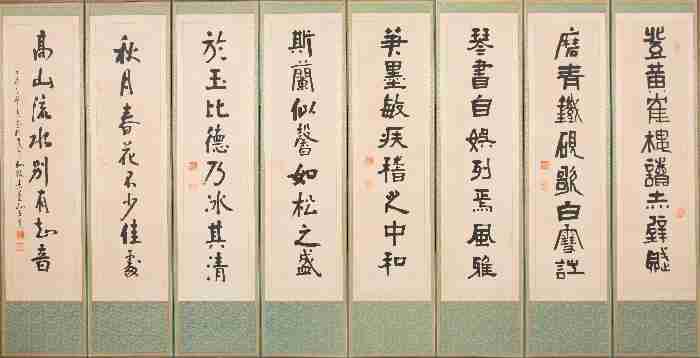 登黃崔樓讀赤壁賦
磨青鐵硯歌白雪詩
琴書自娛列焉風雅
筆墨敏疾稽之中和
斯蘭似馨如松之盛
於玉比德乃冰其清
秋月春花不少佳處
高山流水別有知音